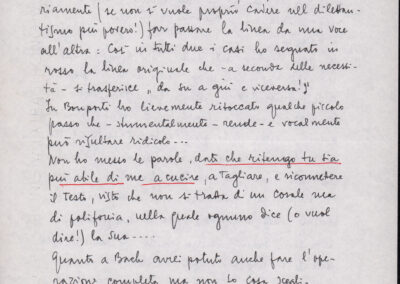 riamente (se non si vuole proprio cadere nel dilettan-
tismo più povero!) far passare la linea da una voce
all'altra: Così in tutti due i casi ho segnato in
rosso la linea originale che - a seconda delle necessi-
tà - si trasferisce "da su a giù e viceversa!"
In Bonporti ho lievemente ritoccato qualche piccolo
passo che - strumentalmente - rende - e vocalmente
può risultare ridicolo...
Non ho messo le parole, dato che ritengo tu sia
più abile di me a cucire, a tagliare, e ricomettere
il Testo, visto che non si tratta di un Corale ma
di polifonia, nella quale ognuno dice (o vuol
dire!) la sua.....
Quanto a Bach avrei potuto anche fare l'ope-
razione completa ma non so cosa scegli.